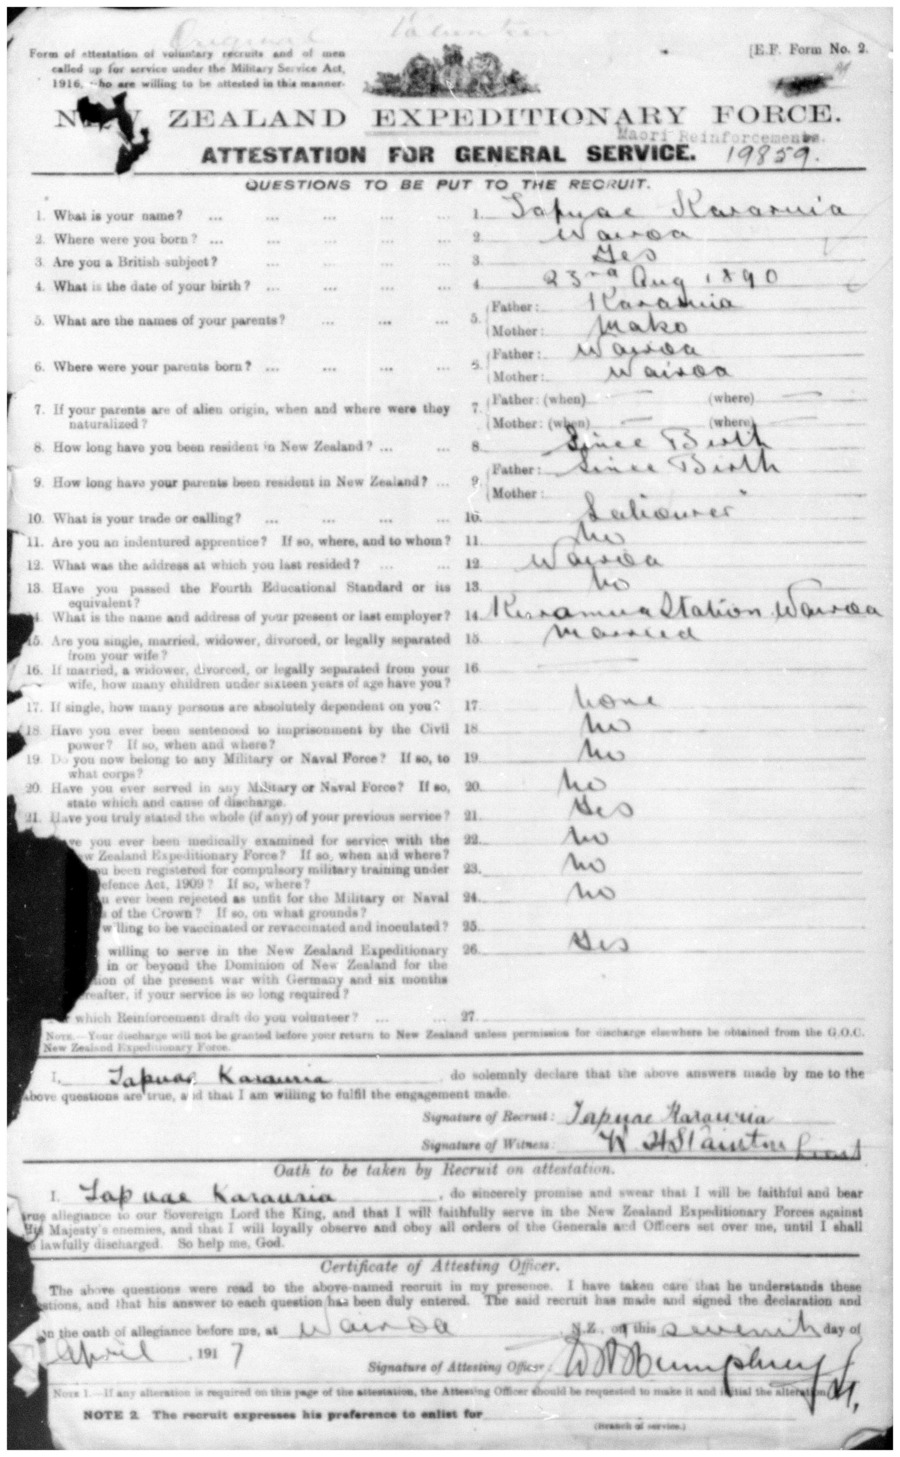 Original Volunteer
Form of attestation of voluntary recruits and of men
called up for service under the Military Service Act,
1916, who are willing to be attested in this manner.
[E.F. Form No. 2.
ZEALAND EXPEDITIONARY FORCE.
Maori Reinforcements.
ATTESTATION FOR GENERAL SERVICE. 19859.
QUESTIONS TO BE PUT TO THE RECRUIT.
1. What is your name? ... ... ... ... ... 1. Tapuae Karauria
2. Where were you born? ... ... ... ... ... 2. Wairoa
3. Are you a British subject? ... ... ... ... 3. Yes
4. What is the date of your birth? ... ... ... ... 4. 23rd Aug 1890
5. What are the names of your parents? ... ... ... 5. Father: Karauria
Mother: Mako
6. Where were your parents born? ... ... ... ... 5. Father: Wairoa
Mother: Wairoa
7. If your parents are of alien origin, when and where were they
naturalized?
7. Father: (when) — (where) —
Mother: (when) — (where) —
8. How long have you been resident in New Zealand? ... ... 8. Since Birth
9. How long have your parents been resident in New Zealand? ... 9. Father: Since Birth
Mother: "
10. What is your trade or calling? ... ... ... ... 10. Labourer
11. Are you an indentured apprentice? If so, where, and to whom? 11. No
12. What was the address at which you last resided? ... ... 12. Wairoa
13. Have you passed the Fourth Educational Standard or its
equivalent?
13. No
4. What is the name and address of your present or last employer? 14. Station Wairoa
15. Are you single, married, widower, divorced, or legally separated
from your wife?
15. Married
16. If married, a widower, divorced, or legally separated from your
wife, how many children under sixteen years of age have you?
16. —
17. If single, how many persons are absolutely dependent on you? 17. None
18. Have you ever been sentenced to imprisonment by the Civil
power? If so, when and where?
18. No
19. Do you now belong to any Military or Naval Force? If so, to
what corps?
19. No
20. Have you ever served in any Military or Naval Force? If so,
state which and cause of discharge.
20. No
21. Have you truly stated the whole (if any) of your previous service? 21. Yes
ve you ever been medically examined for service with the
w Zealand Expeditionary Force? If so, when and where?
22. No
u been registered for compulsory military training under
efence Act, 1909? If so, where?
23. No
n ever been rejected as unfit for the Military or Naval
s of the Crown? If so, on what grounds?
24. No
willing to be vaccinated or revaccinated and inoculated? 25.
willing to serve in the New Zealand Expeditionary
in or beyond the Dominion of New Zealand for the
tion of the present war with Germany and six months
reafter, if your service is so long required?
26. Yes
which Reinforcement draft do you volunteer? ... ... 27.
NOTE.—Your discharge will not be granted before your return to New Zealand unless permission for discharge elsewhere be obtained from the G.O.C.
New Zealand Expeditionary Force.
I, Tapuae Karauria, do solemnly declare that the above answers made by me to the
above questions are true, and that I am willing to fulfil the engagement made.
Signature of Recruit: Tapuae Karauria
Signature of Witness: W. H. Stainton Lieut
Oath to be taken by Recruit on attestation.
I, Tapuae Karauria, do sincerely promise and swear that I will be faithful and bear
true allegiance to our Sovereign Lord the King, and that I will faithfully serve in the New Zealand Expeditionary Forces against
His Majesty's enemies, and that I will loyally observe and obey all orders of the Generals and Officers set over me, until I shall
e lawfully discharged. So help me, God.
Certificate of Attesting Officer.
The above questions were read to the above-named recruit in my presence. I have taken care that he understands these
stions, and that his answer to each question has been duly entered. The said recruit has made and signed the declaration and
n the oath of allegiance before me, at Wairoa, N.Z., on this seventh day of
April, 1917
Signature of Attesting Officer: Humphrey
NOTE 1.—If any alteration is required on this page of the attestation, the Attesting Officer should be requested to make it and initial the alteration
NOTE 2. The recruit expresses his preference to enlist for
(Branch of service.)